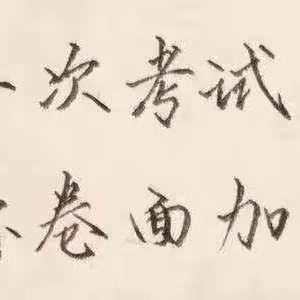 次考试
卷面加